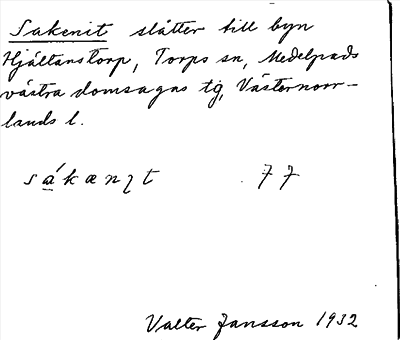 Sakenit slåtter till byn
Hjältanstorp, Torps sn, Medelpads
västra domsagas tg, Västernorr-
lands l.
sákænɩt 77
Valter Jansson 1932